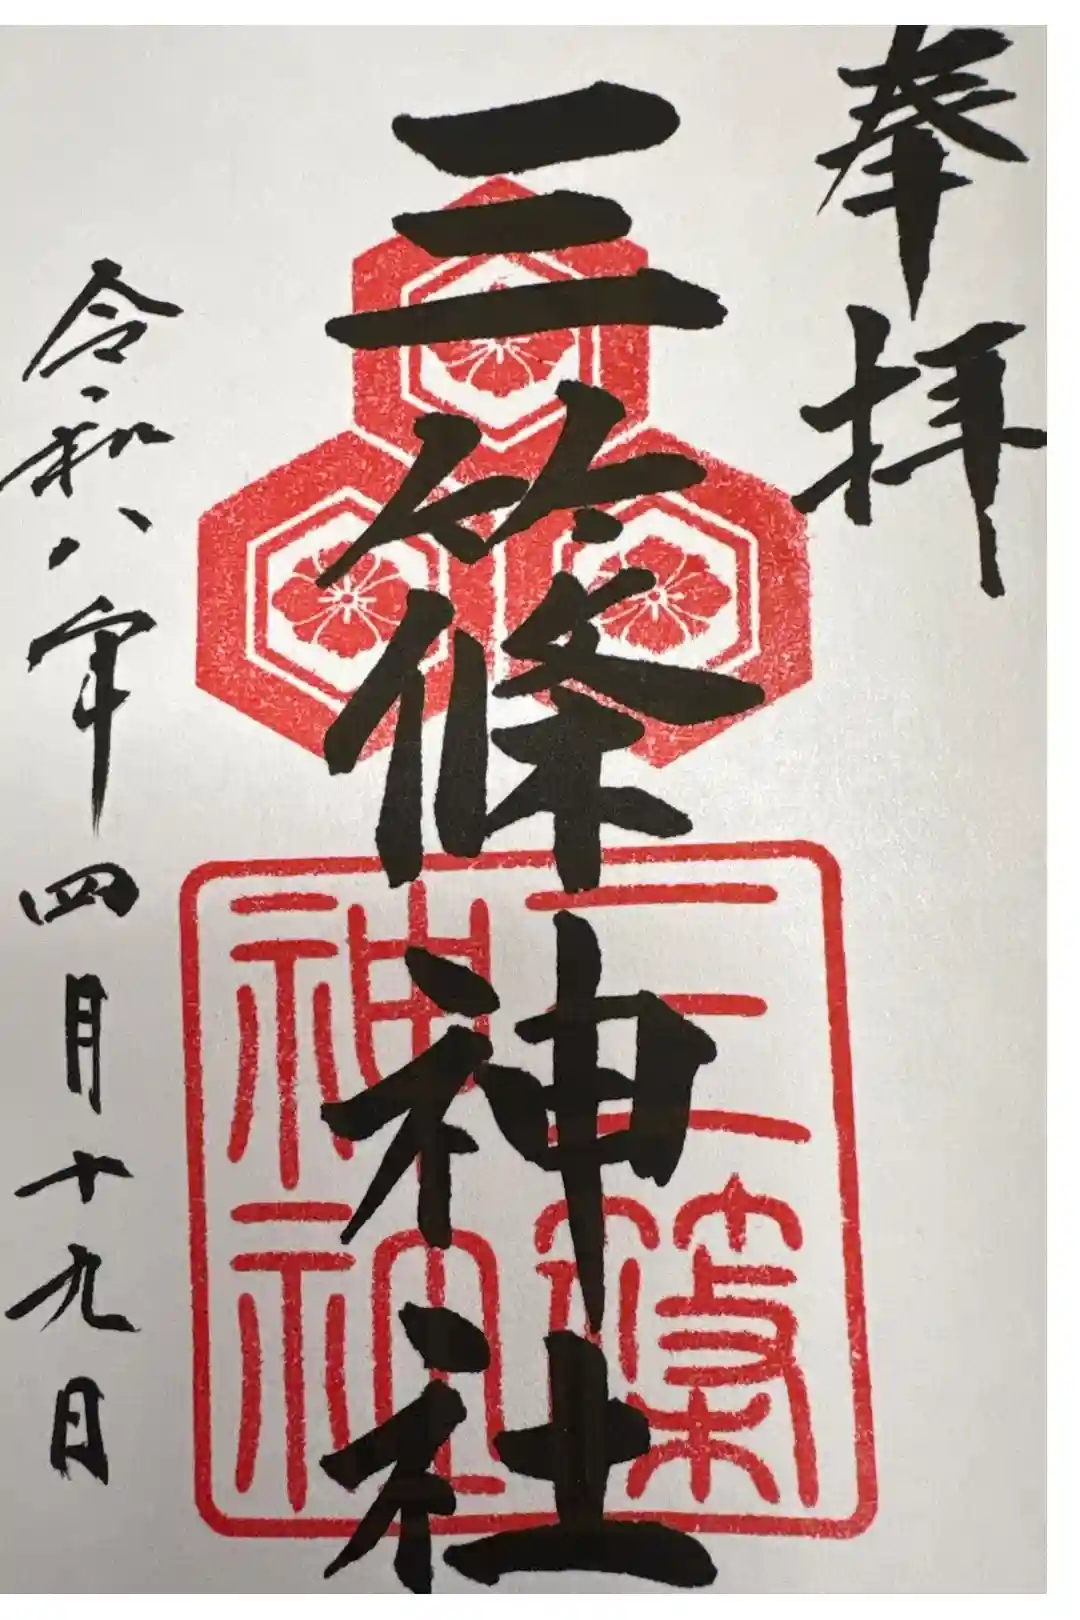 奉拝
三篠神社
令和八年四月十九日
三篠
神社